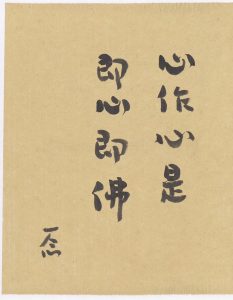 心作心是
即心即佛
一念